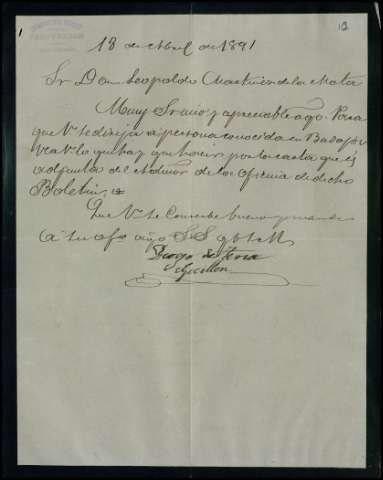 12
18 de Abril de 1891
Sr Don Leopoldo Martinez de la Mata
Muy Sr mio y apreciable ago. Para
que V. se dirija a persona conocida en Badajoz
vea V. lo que hay que hacer por la carta que es
adjunta del de la Oficina de dicho
Boletin,
Que V. se conserbe bueno y mande
a su afo. amo S S q b s M
Diego de